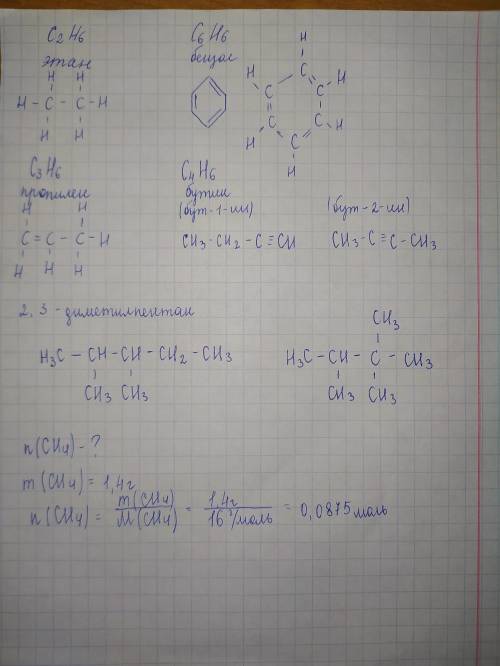 C2H6
этан
H H
H - C - C - H
H H
C6H6
бензол
H
C
H H
C C
C C
H C H
H
C3H6
пропилен
H H
C = C - C - H
H H H
C4H6
бутин
(бут-1-ин)
CH3-CH2-C≡CH
(бут-2-ин)
CH3-C≡C-CH3
2,3-диметилпентан
H3C - CH - CH - CH2 - CH3
CH3 CH3
CH3
H3C - CH - C - CH3
CH3 CH3
n(CH4) - ?
m(CH4) = 1,4г
n(CH4) = m(CH4)/M(CH4) = 1,4г/16 г/моль = 0,0875 моль